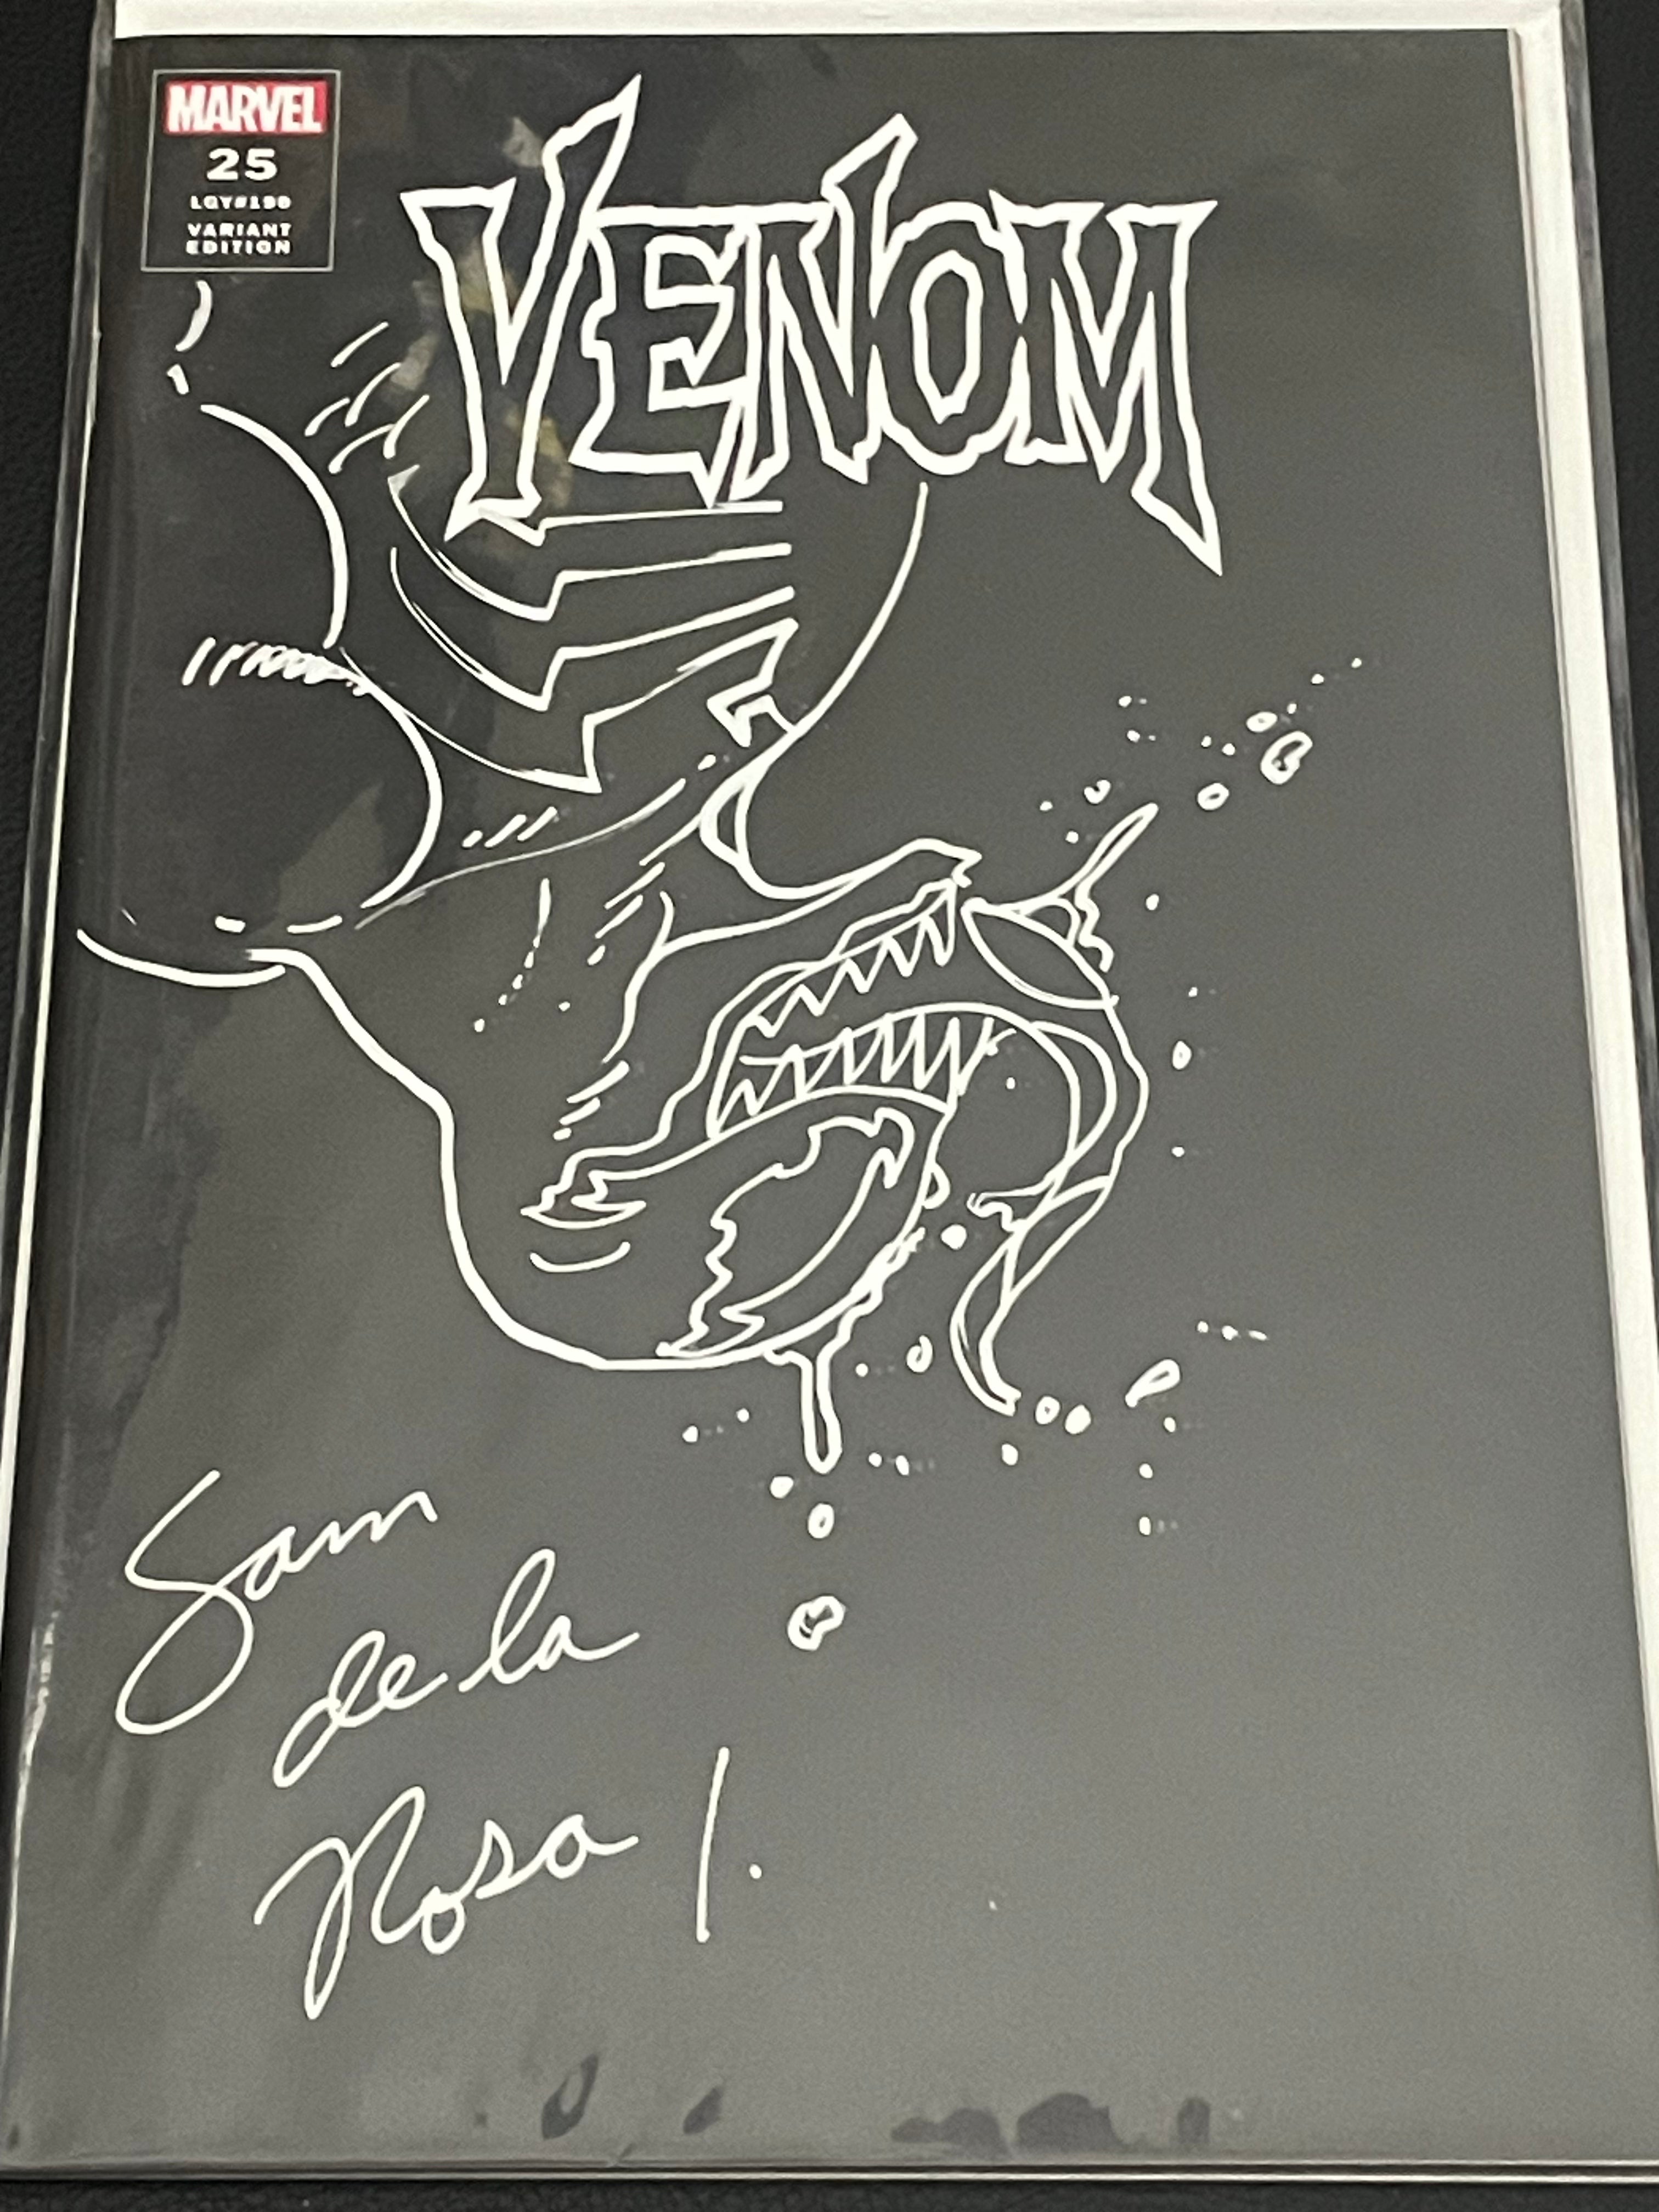 MARVEL
25
LGY#190
VARIANT
EDITION
VENOM
Sam
de la
Rosa 1.